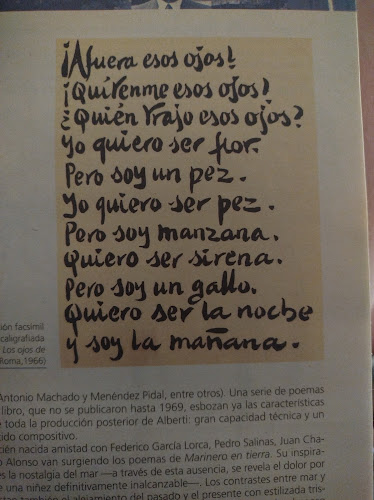 ¡Afuera esos ojos!
¡Quítenme esos ojos!
¿Quién trajo esos ojos?
Yo quiero ser flor.
Pero soy un pez.
Yo quiero ser pez.
Pero soy manzana.
Quiero ser sirena.
Pero soy un gallo.
Quiero ser la noche
y soy la mañana.
ión facsimil
caligrafiada
Los ojos de
Roma, 1966)
Antonio Machado y Menéndez Pidal, entre otros). Una serie de poemas
libro, que no se publicaron hasta 1969, esbozan ya las características
e toda la producción posterior de Alberti: gran capacidad técnica y un
ido compositivo.
cién nacida amistad con Federico García Lorca, Pedro Salinas, Juan Cha-
o Alonso van surgiendo los poemas de Marinero en tierra. Su inspira-
es la nostalgia del mar —a través de esta ausencia, se revela el dolor por
e una niñez definitivamente inalcanzable—. Los contrastes entre mar y
tan también el alejamiento del pasado y el presente con estilizada tris-